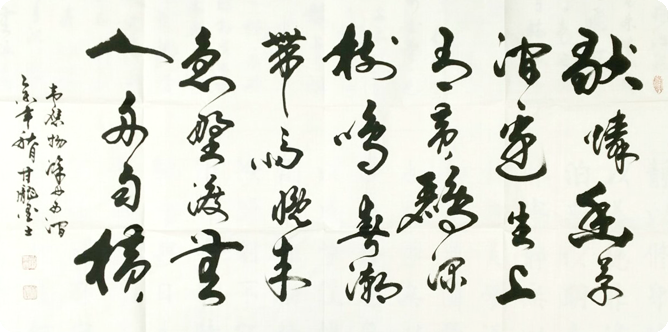 獨憐幽草
澗邊生上
有黃鸝深
樹鳴春潮
帶雨晚來
急野渡無
人舟自橫
韋應物滁州西澗
年秋月